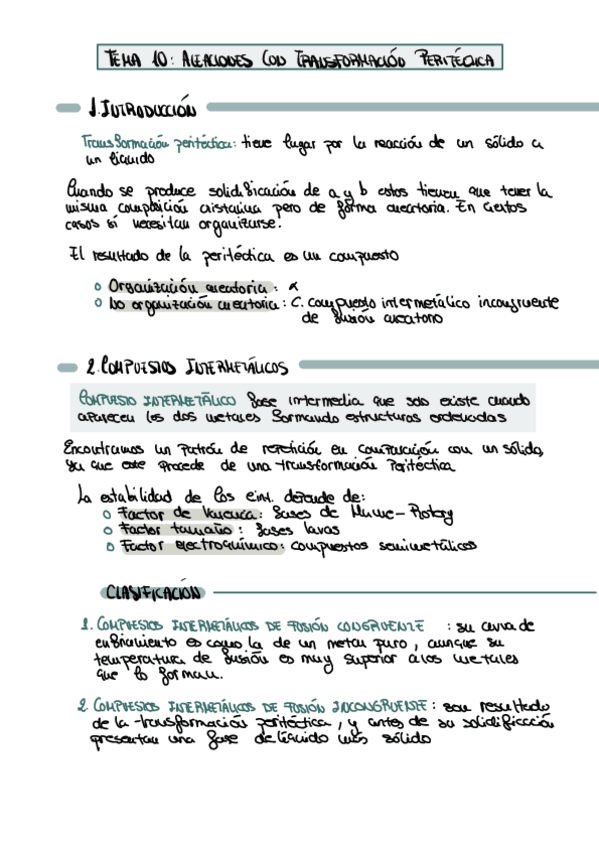 TEMA 10: ALEACIONES CON TRANSFORMACIÓN PERITÉCTICA
1. INTRODUCCIÓN
Transformación peritéctica: tiene lugar por la reacción de un sólido a
un líquido
Cuando se produce solidificación de a y b estos tienen que tener la
misma composición cristalina pero de forma aleatoria. En ciertos
casos sí necesitan organizarse.
El resultado de la peritéctica es un compuesto
Organización aleatoria: α
No organización aleatoria: C. compuesto intermetálico incongruente
de fusión
2. COMPUESTOS INTERMETÁLICOS
COMPUESTO INTERMETÁLICO fase intermedia que solo existe cuando
aparecen los dos metales formando estructuras ordenadas
Encontramos un patrón de repetición en comparación con un sólido,
ya que este procede de una transformación Peritéctica
La estabilidad de los c.int. depende de:
Factor de Valencia: fases de Hume-Rotery
Factor tamaño: fases lavas
Factor electroquímico: compuestos semimetálicos
CLASIFICACIÓN
1. COMPUESTOS INTERMETÁLICOS DE FUSIÓN CONGRUENTE: su curva de
enfriamiento es como la de un metal puro, aunque su
temperatura de fusión es muy superior a los metales
que lo forman.
2. COMPUESTOS INTERMETÁLICOS DE FUSIÓN INCONGRUENTE: son resultado
de la transformación peritéctica, y antes de su solidificación
presentan una fase de líquido más sólido